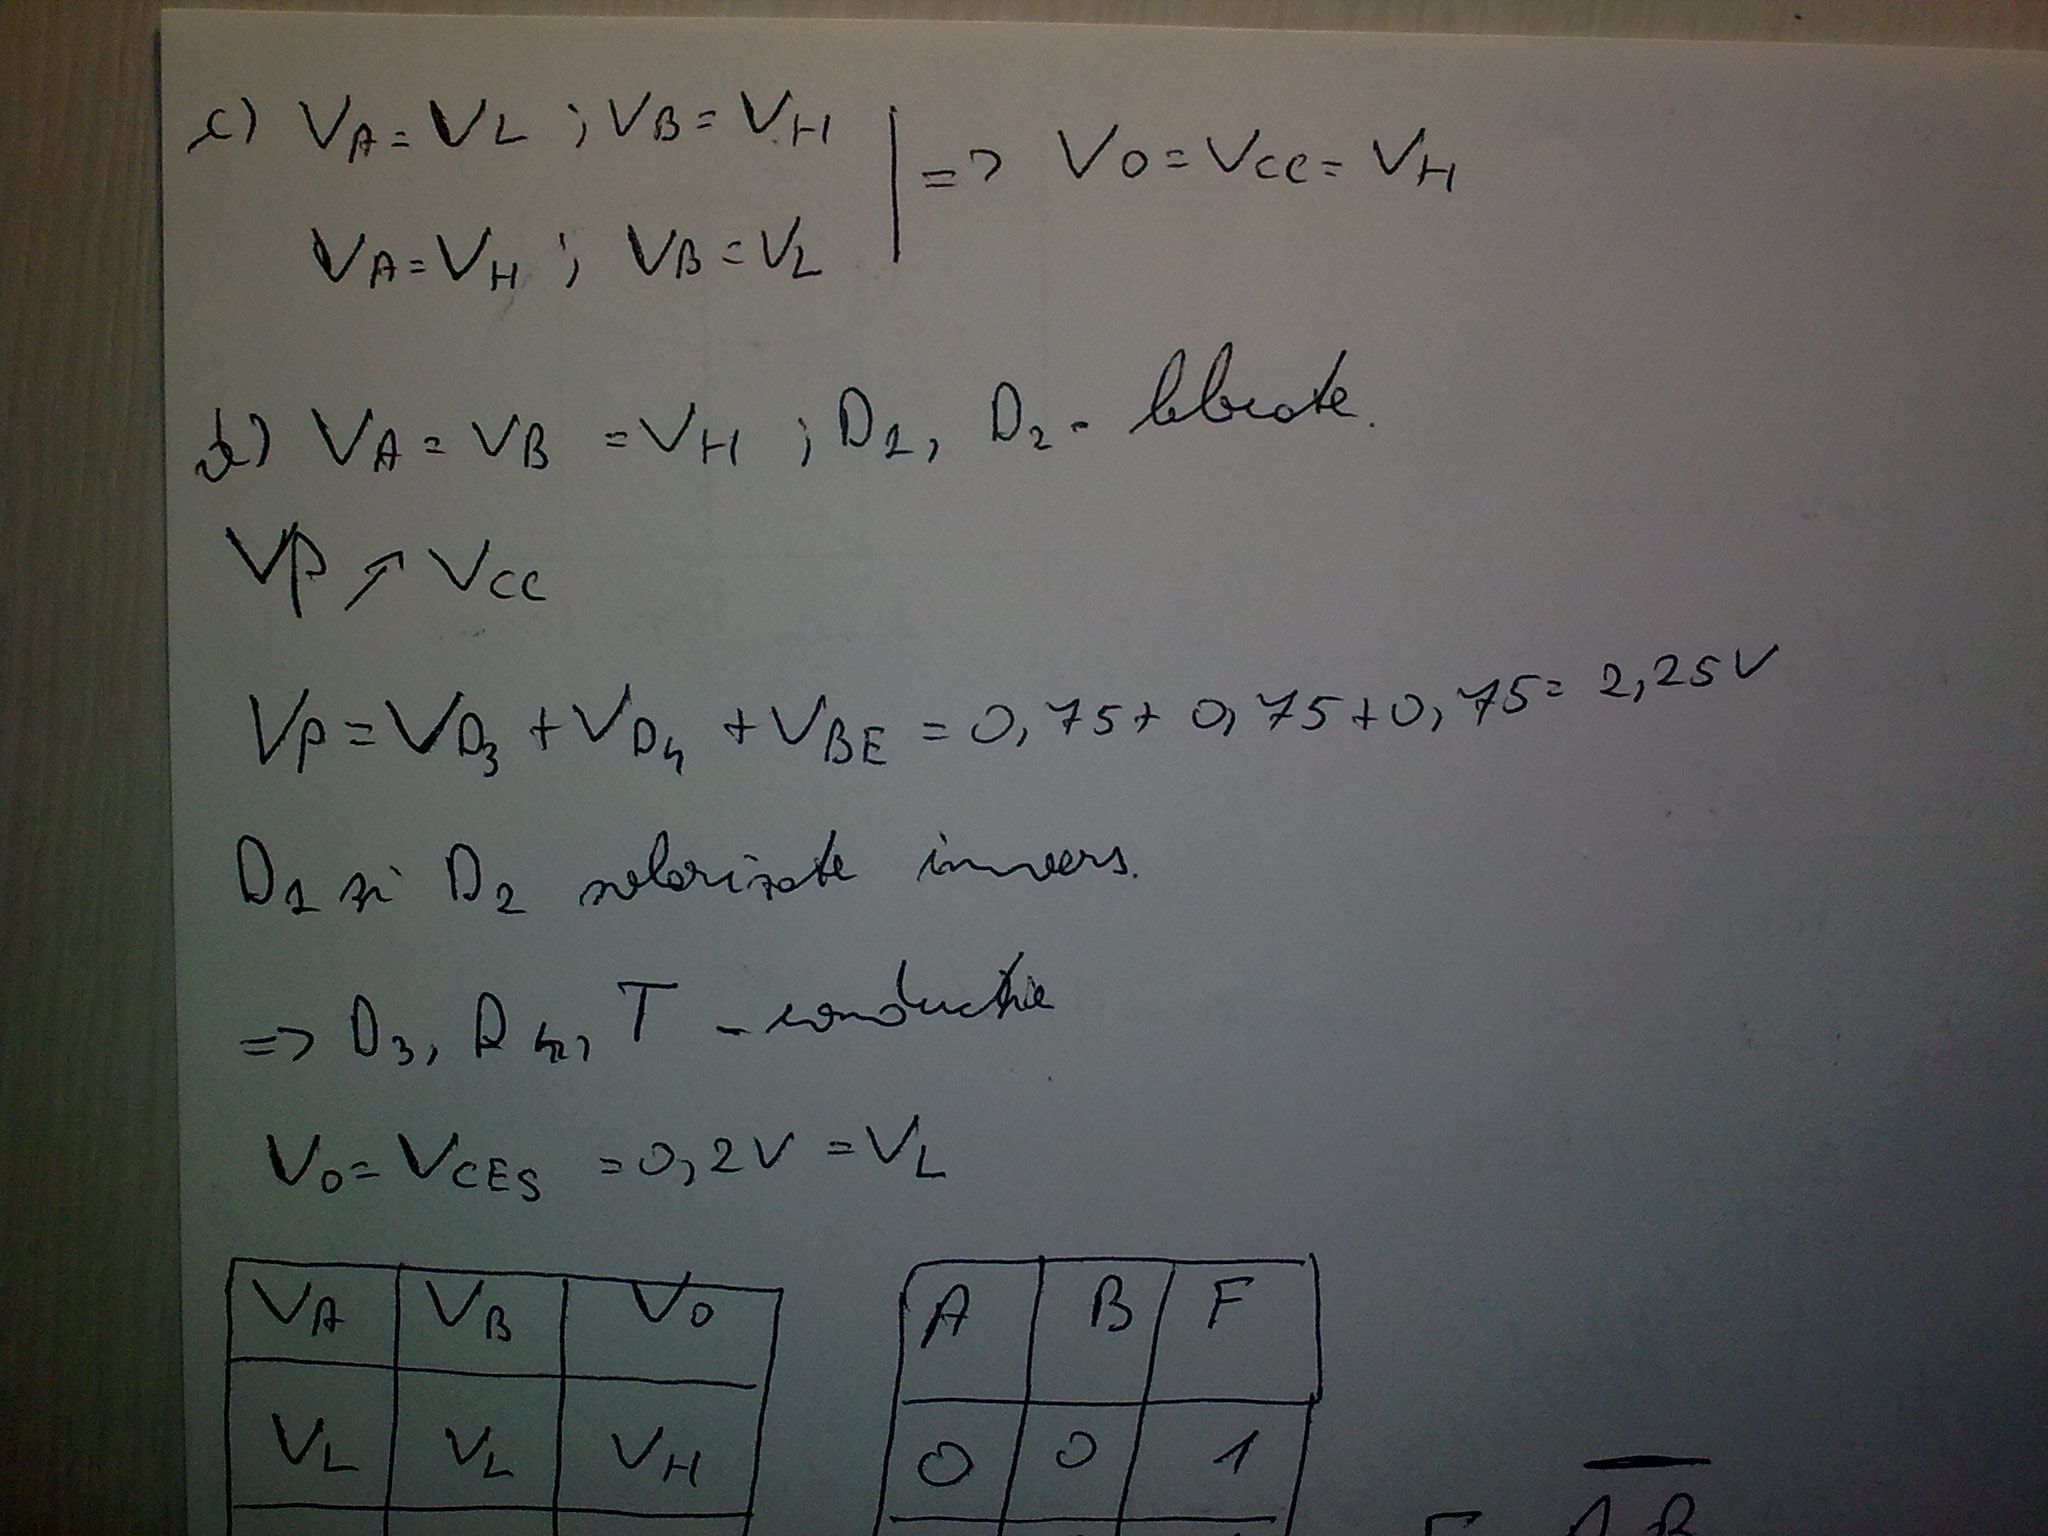 c) VA = VL ; VB = VH
VA = VH ; VB = VL | => VO = VCC = VH
d) VA = VB = VH ; D1, D2 - blocate.
VP ↗ VCC
VP = VD3 + VD4 + VBE = 0,75 + 0,75 + 0,75 = 2,25V
D1 si D2 polarizate invers.
=> D3, D4, T - conductie
VO = VCES = 0,2V = VL
VA VB VO
VL VL VH
A B F
0 0 1